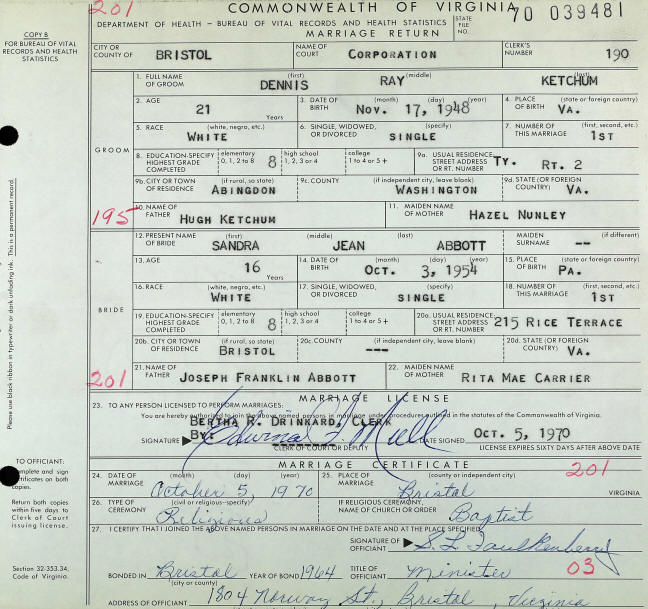 201 COMMONWEALTH OF VIRGINIA 70 039481
DEPARTMENT OF HEALTH – BUREAU OF VITAL RECORDS AND HEALTH STATISTICS STATE FILE NO.
MARRIAGE RETURN
COPY B
FOR BUREAU OF VITAL
RECORDS AND HEALTH
STATISTICS
CITY OR COUNTY OF BRISTOL NAME OF COURT CORPORATION CLERK'S NUMBER 190
GROOM
1. FULL NAME OF GROOM (first) DENNIS (middle) RAY (last) KETCHUM
2. AGE 21 Years 3. DATE OF BIRTH (month) (day) (year) Nov. 17, 1948 4. PLACE OF BIRTH (state or foreign country) VA.
5. RACE (white, negro, etc.) WHITE 6. SINGLE, WIDOWED, OR DIVORCED (specify) SINGLE 7. NUMBER OF THIS MARRIAGE (first, second, etc.) 1ST
8. EDUCATION-SPECIFY HIGHEST GRADE COMPLETED elementary 0, 1, 2 to 8 8 high school 1, 2, 3 or 4 college 1 to 4 or 5+ 9a. USUAL RESIDENCE STREET ADDRESS OR RT. NUMBER TY. RT. 2
9b. CITY OR TOWN OF RESIDENCE (if rural, so state) ABINGDON 9c. COUNTY (if independent city, leave blank) WASHINGTON 9d. STATE (OR FOREIGN COUNTRY) VA.
195 10. NAME OF FATHER HUGH KETCHUM 11. MAIDEN NAME OF MOTHER HAZEL NUNLEY
BRIDE
12. PRESENT NAME OF BRIDE (first) SANDRA (middle) JEAN (last) ABBOTT MAIDEN SURNAME (if different) --
13. AGE 16 Years 14. DATE OF BIRTH (month) (day) (year) OCT. 3, 1954 15. PLACE OF BIRTH (state or foreign country) PA.
16. RACE (white, negro, etc.) WHITE 17. SINGLE, WIDOWED, OR DIVORCED (specify) SINGLE 18. NUMBER OF THIS MARRIAGE (first, second, etc.) 1ST
19. EDUCATION-SPECIFY HIGHEST GRADE COMPLETED elementary 0, 1, 2 to 8 8 high school 1, 2, 3 or 4 college 1 to 4 or 5+ 20a. USUAL RESIDENCE STREET ADDRESS OR RT. NUMBER 215 RICE TERRACE
20b. CITY OR TOWN OF RESIDENCE (if rural, so state) BRISTOL 20c. COUNTY (if independent city, leave blank) --- 20d. STATE (OR FOREIGN COUNTRY) VA.
201 21. NAME OF FATHER JOSEPH FRANKLIN ABBOTT 22. MAIDEN NAME OF MOTHER RITA MAE CARRIER
Please use black ribbon in typewriter or dark unfading ink. This is a permanent record.
MARRIAGE LICENSE
23. TO ANY PERSON LICENSED TO PERFORM MARRIAGES:
You are hereby authorized to join the above named persons in marriage under procedures outlined in the statutes of the Commonwealth of Virginia.
BERTHA R. DRINKARD, CLERK
SIGNATURE BY: DATE SIGNED OCT. 5, 1970
CLERK OF COURT OR DEPUTY LICENSE EXPIRES SIXTY DAYS AFTER ABOVE DATE
TO OFFICIANT:
Complete and sign
certificates on both
copies.
Return both copies
within five days to
Clerk of Court
issuing license.
Section 32-353.34,
Code of Virginia.
MARRIAGE CERTIFICATE
24. DATE OF MARRIAGE (month) (day) (year) October 5, 1970 25. PLACE OF MARRIAGE (county or independent city) Bristol 201 VIRGINIA
26. TYPE OF CEREMONY (civil or religious--specify) Religious IF RELIGIOUS CEREMONY, NAME OF CHURCH OR ORDER Baptist
27. I CERTIFY THAT I JOINED THE ABOVE NAMED PERSONS IN MARRIAGE ON THE DATE AND AT THE PLACE SPECIFIED.
SIGNATURE OF OFFICIANT S. L. Faulkenberry
BONDED IN Bristol (city or county) YEAR OF BOND 1964 TITLE OF OFFICIANT Minister 03
ADDRESS OF OFFICIANT 1804 Norway St., Bristol, Virginia